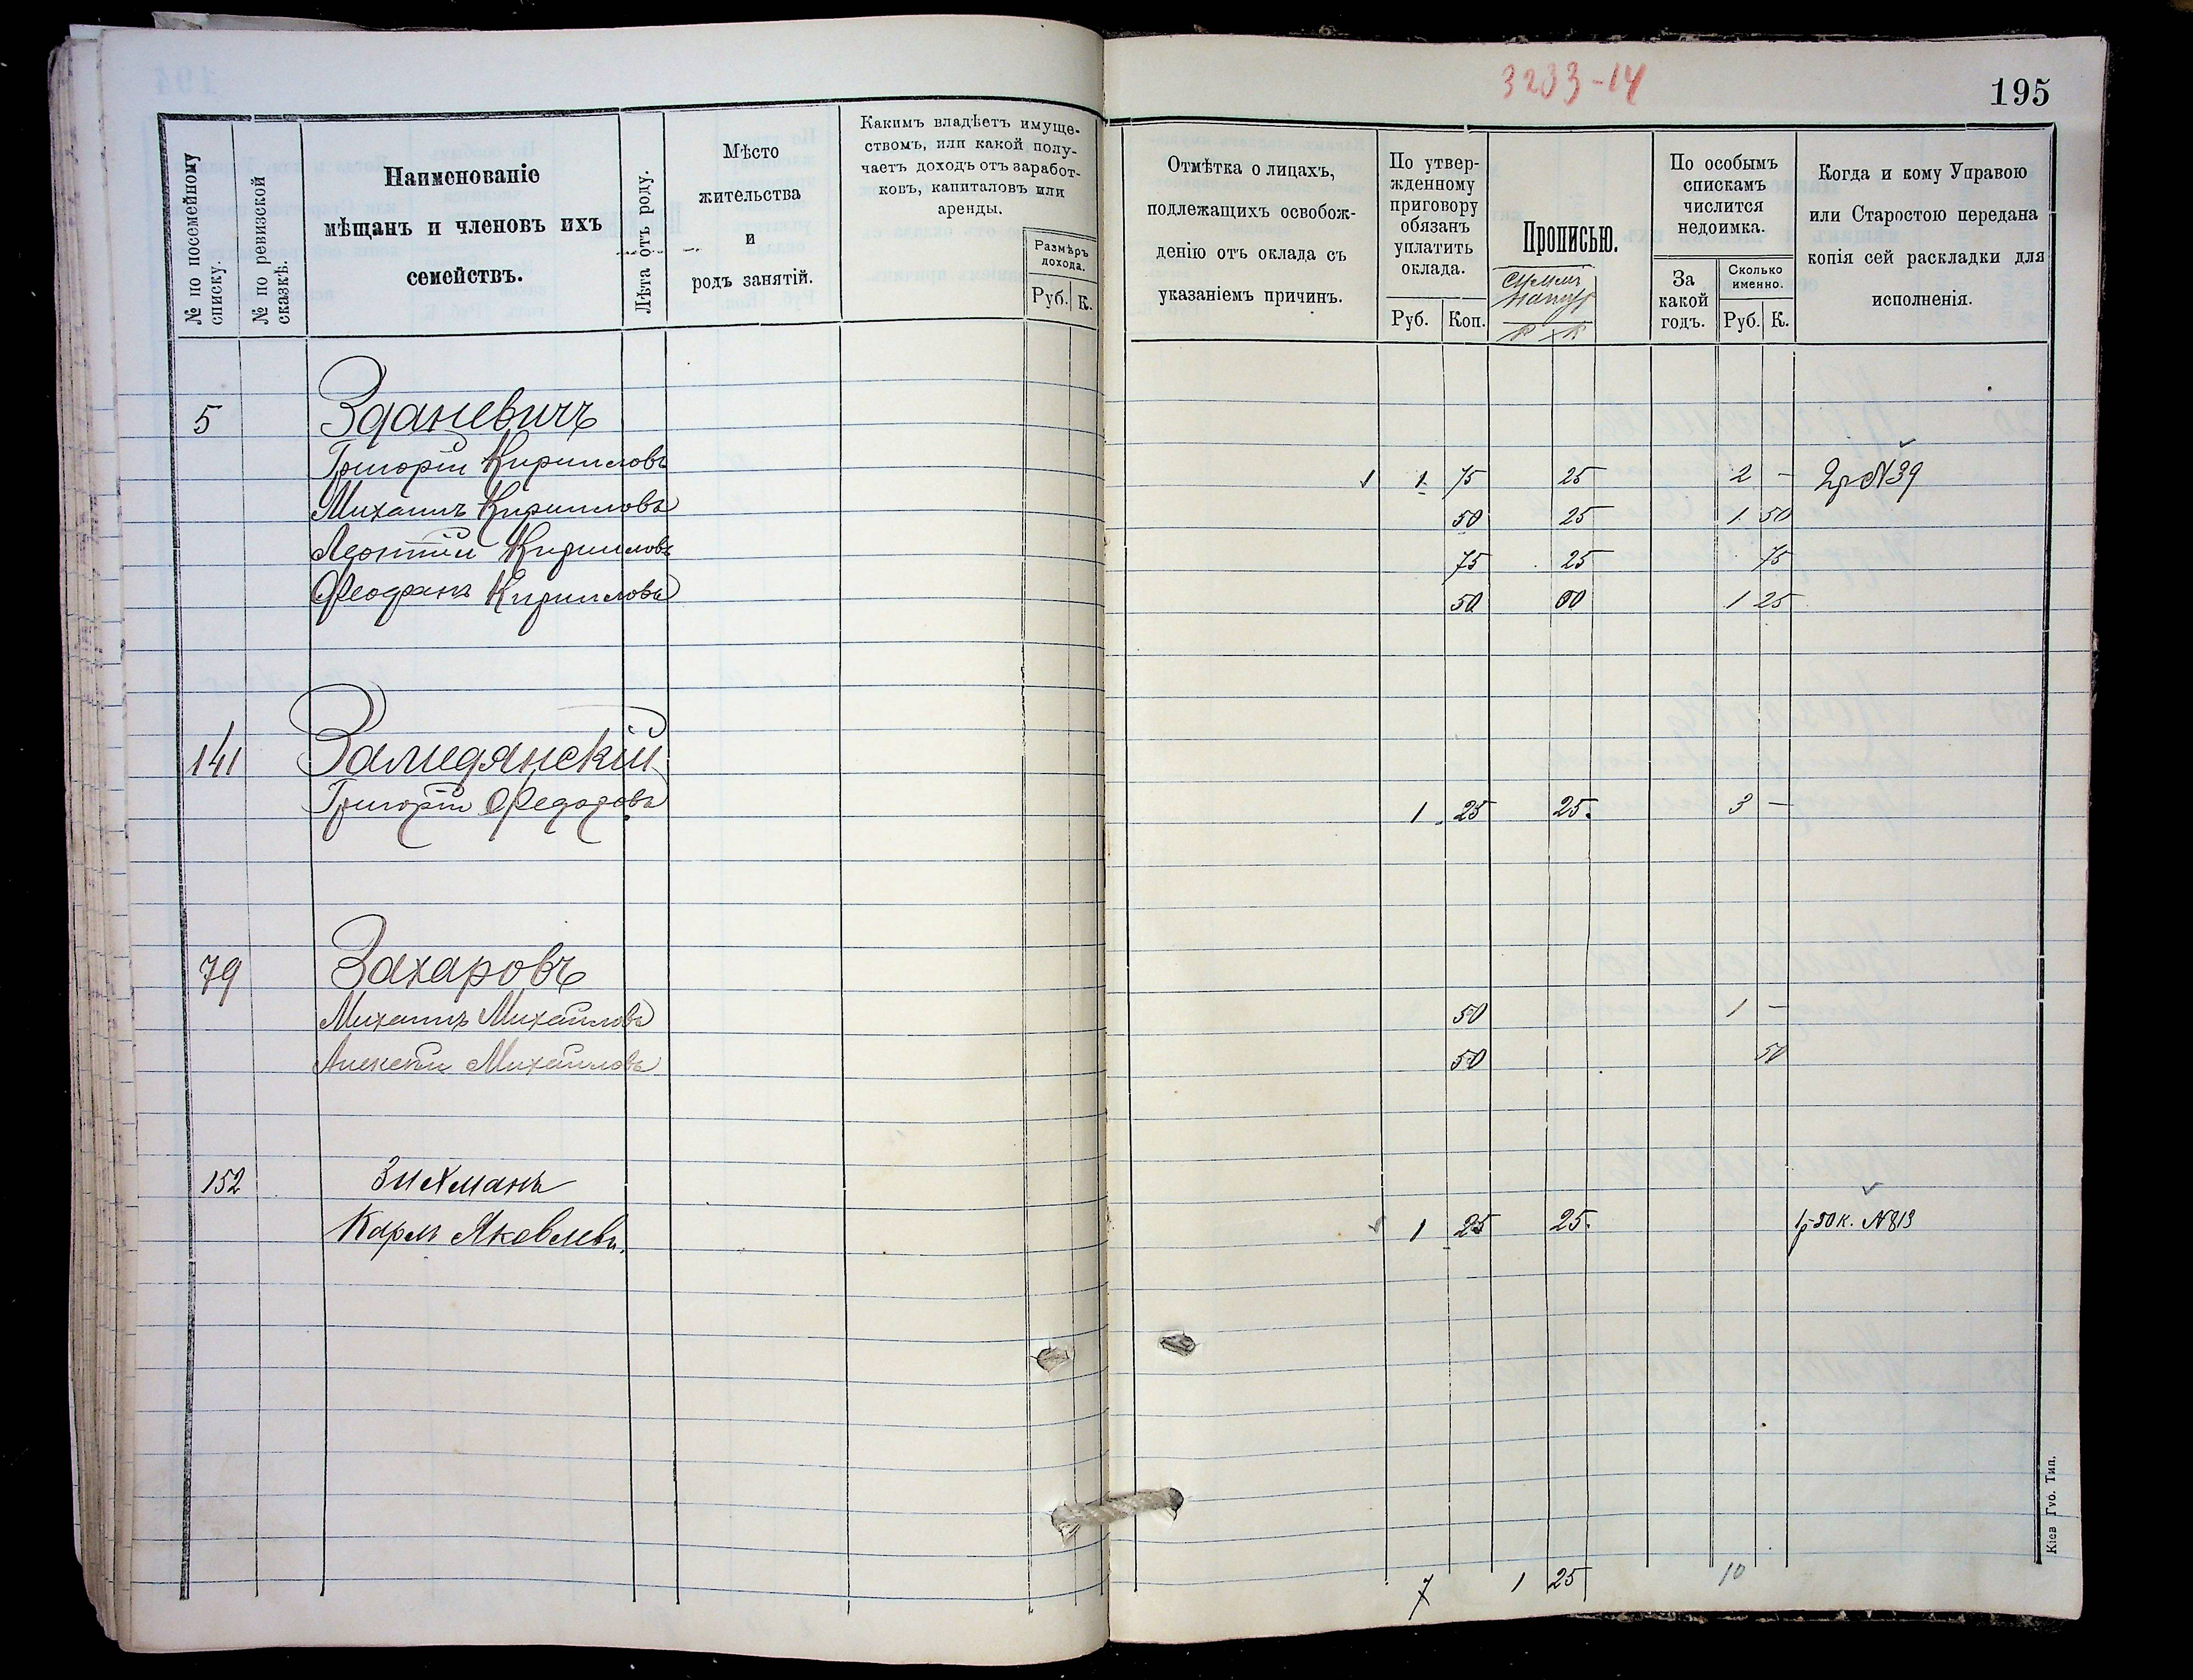 3233-14
195
№ по посемейному списку.
№ по ревизской сказкѣ.
Наименованіе
мѣщанъ и членовъ ихъ
семействъ.
Лѣта отъ роду.
Мѣсто
жительства
и
родъ занятій.
Какимъ владѣетъ имуще-
ствомъ, или какой полу-
чаетъ доходъ отъ заработ-
ковъ, капиталовъ или
аренды.
Размѣръ
дохода.
Руб. К.
Отмѣтка о лицахъ,
подлежащихъ освобож-
денію отъ оклада съ
указаніемъ причинъ.
По утвер-
жденному
приговору
обязанъ
уплатить
оклада.
Руб. Коп.
Прописью.
Р К
По особымъ
спискамъ
числится
недоимка.
За
какой
годъ.
Сколько
именно.
Руб. К.
Когда и кому Управою
или Старостою передана
копія сей раскладки для
исполненія.
5 Зданевичъ
Григорій Кирилловъ 1 75 25 2 — 2р №39
Михаилъ Кирилловъ 50 25 1 50
Леонтій Кирилловъ 75 25 75
Феофанъ Кирилловъ 50 00 1 25
141 Замедянскій
Григорій Федоровъ 1 25 25 3 —
79 Захаровъ
Михаилъ Михайловъ 50 1 —
Алексѣй Михайловъ 50 50
152 Зихманъ
Карлъ Яковлевъ. 1 25 25. 1р50к. №813
7 1 25 10
Кіев Губ. Тип.